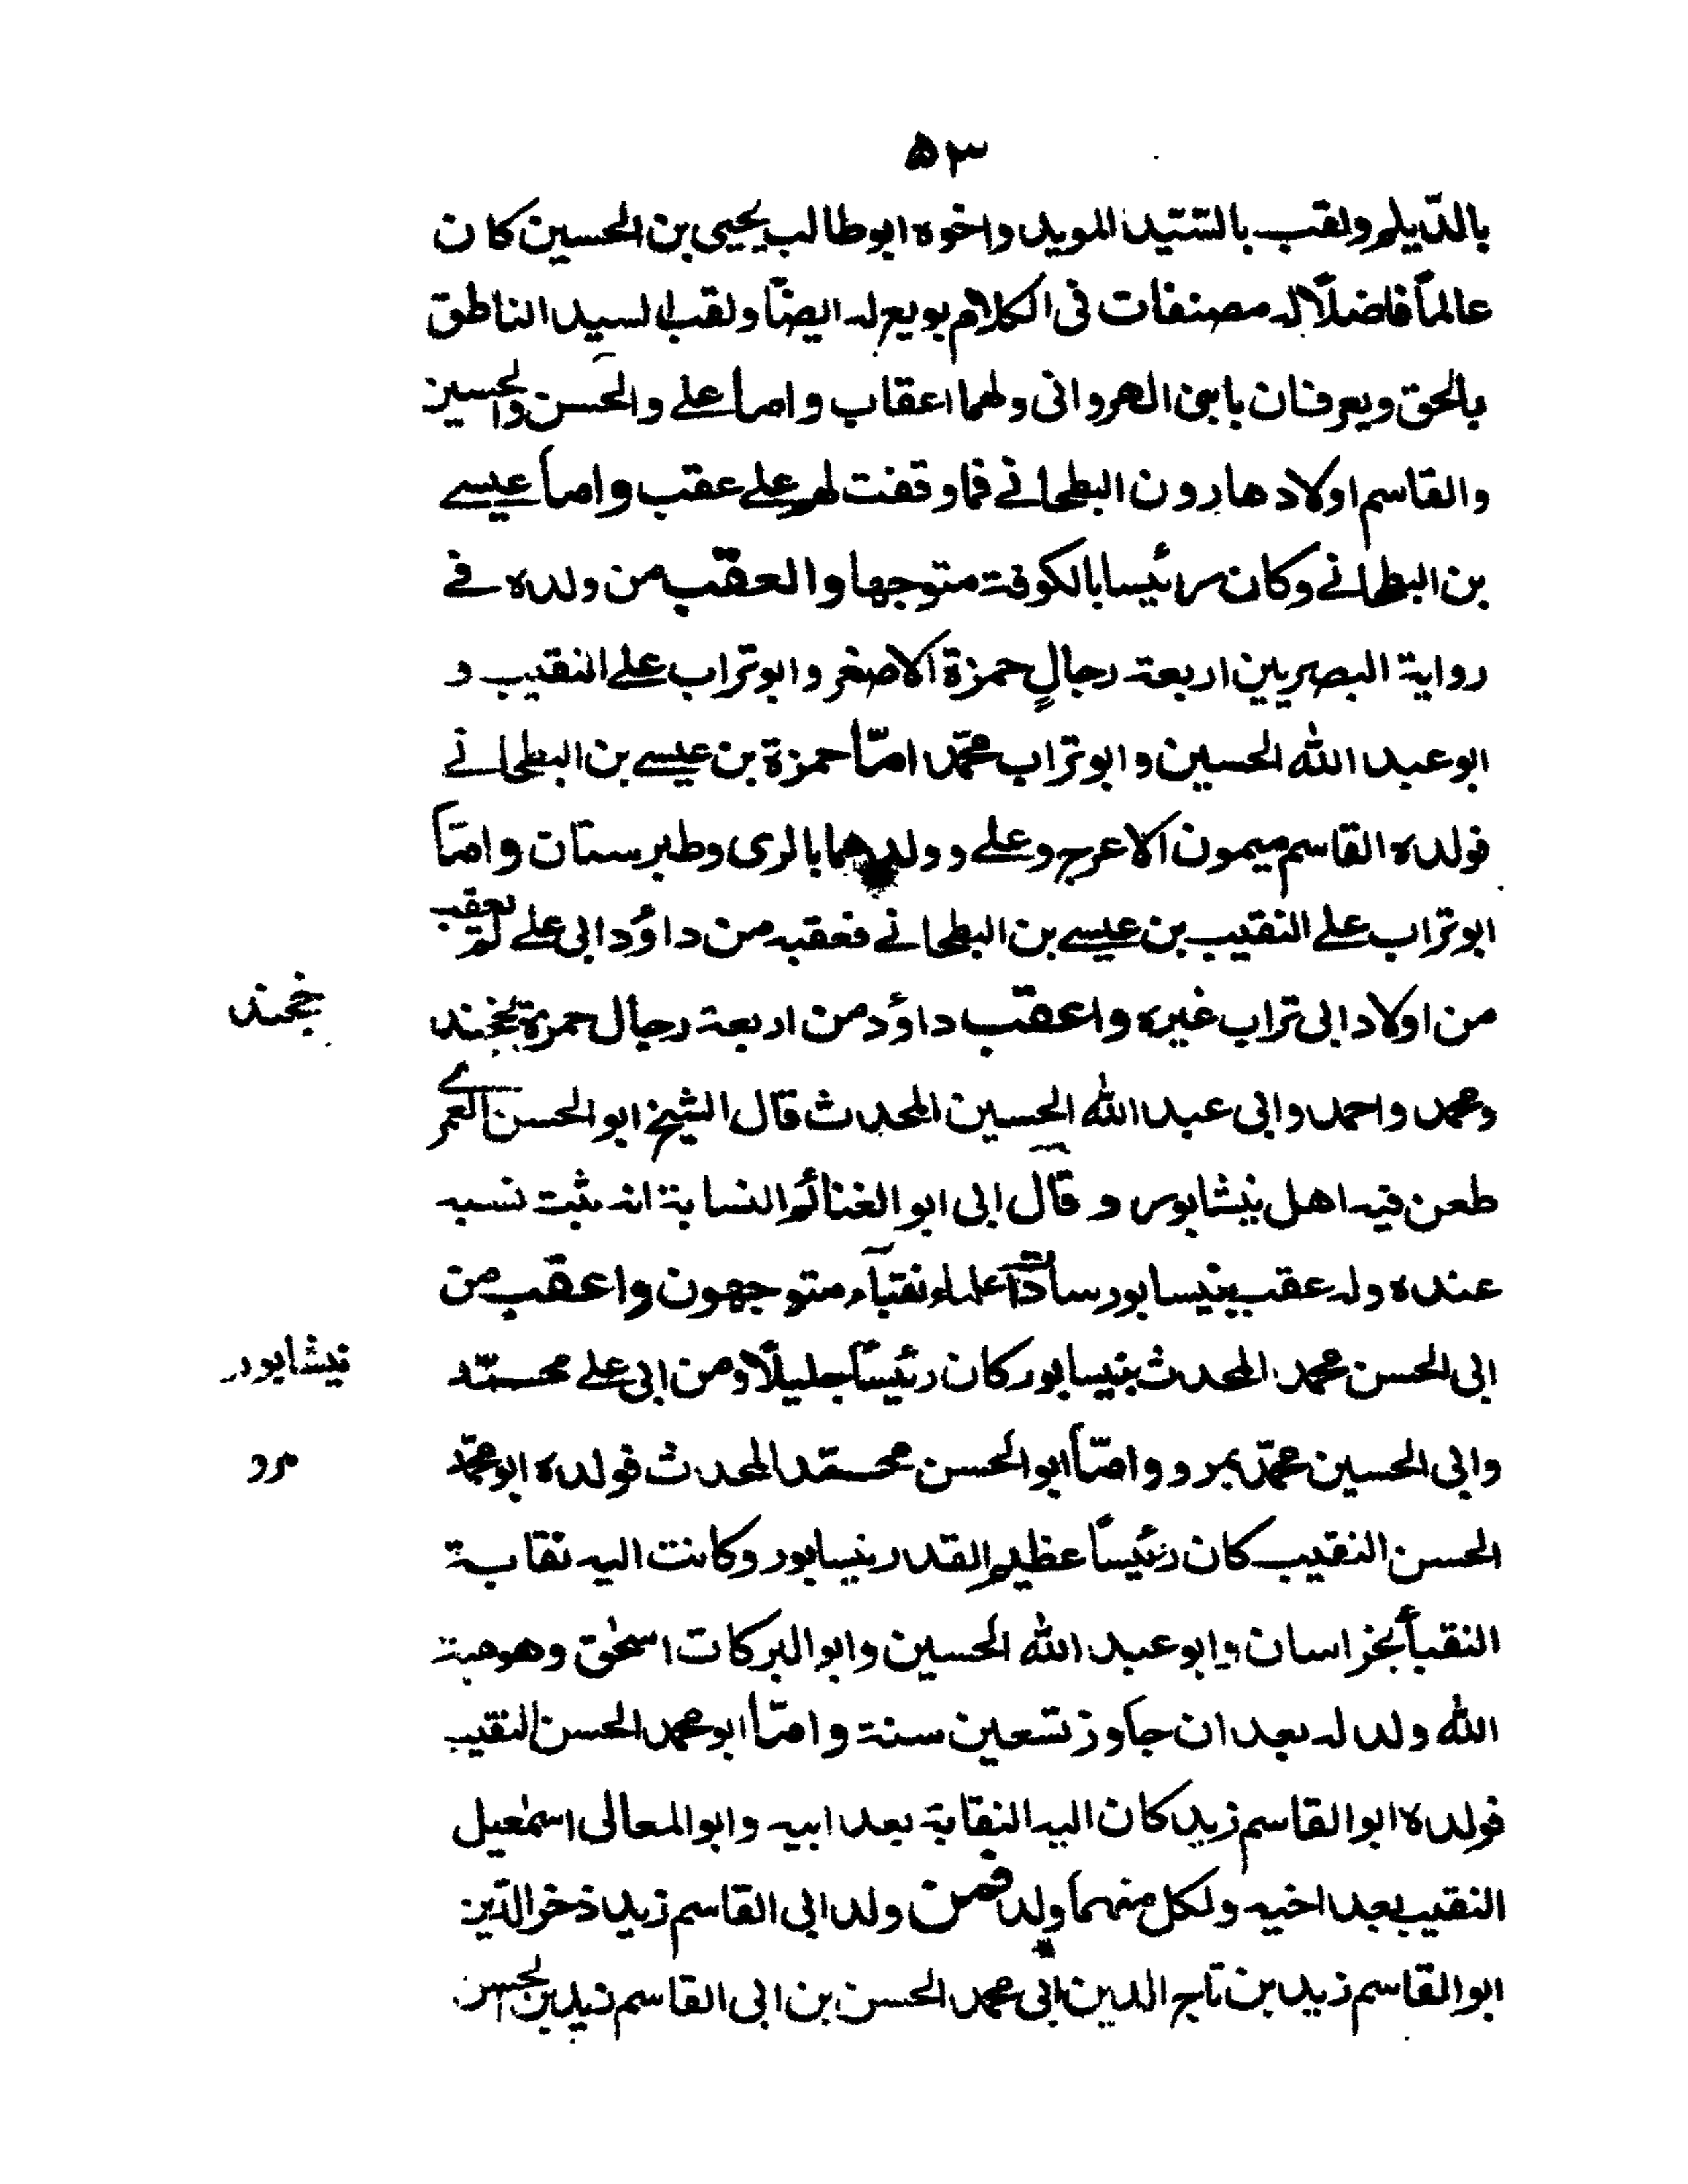 ٥٣
بالدّيلم ولقب بالسّيّد المويد واخوه ابوطالب يحيى بن الحسين كان
عالماً فاضلاً له مصنفات فى الكلام بويع له ايضاً ولقب السيد الناطق
بالحق ويعرفان بابنى الهروانى ولهما اعقاب واما على والحسن والحسين
والقاسم اولاد هارون البطحانے فما وقفت لهم علے عقب واما عيسے
بن البطحانے وكان رئيسا بالكوفة متوجها والعقب من ولده فے
رواية البصريين اربعة رجالٍ حمزة الاصغر وابوتراب علے النقيب و
ابوعبد الله الحسين وابوتراب محمّد امّا حمزة بن عيسے بن البطحانے
فولده القاسم ميمون الاعرج وعلے وولدهما بالرى وطبرستان وامّا
ابوتراب علے النقيب بن عيسے بن البطحانے فعقبه من داؤد ابى علے لم يعقب
من اولاد ابى تراب غيره واعقب داؤد من اربعة رجال حمزة بخجند
خجند
ومحمد واحمد وابى عبد الله الحسين المحدث قال الشيخ ابوالحسن العمرے
طعن فيه اهل نيشابور وقال ابى ابوالغنائم النسابة انه ثبت نسبه
عنده وله عقب بنيسابور ساداتٌ علماء نقباء متوجهون واعقب من
ابى الحسن محمد المحدث بنيسابور كان رئيساً جليلاً ومن ابى علے محمّد
نيشابور
وابى الحسين محمّد بمرو وامّا ابوالحسن محمّد المحدث فولده ابومحمّد
مرو
الحسن النقيب كان رئيساً عظيم القدر بنيسابور وكانت اليه نقابة
النقبأ بخراسان وابوعبد الله الحسين وابوالبركات اسحٰق وهوهبة
الله ولد له بعد ان جاوز تسعين سنة وامّا ابومحمد الحسن النقيب
فولده ابوالقاسم زيد كان اليه النقابة بعد ابيه وابوالمعالى اسمٰعيل
النقيب بعد اخيه ولكل منهما ولد فمن ولد ابى القاسم زيد ذخر الدّين
ابوالقاسم زيد بن تاج الدين ابى محمد الحسن بن ابى القاسم زيد بن الحسن